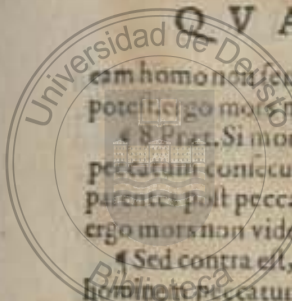 Q V A
eam homo non
potest. ergo
¶ 8 Præt. Si mor
peccatum consecu
parentes post pecca
ergo mors non vide
¶ Sed contra est,
hominem peccatum
Universidad de Deusto
Biblioteca